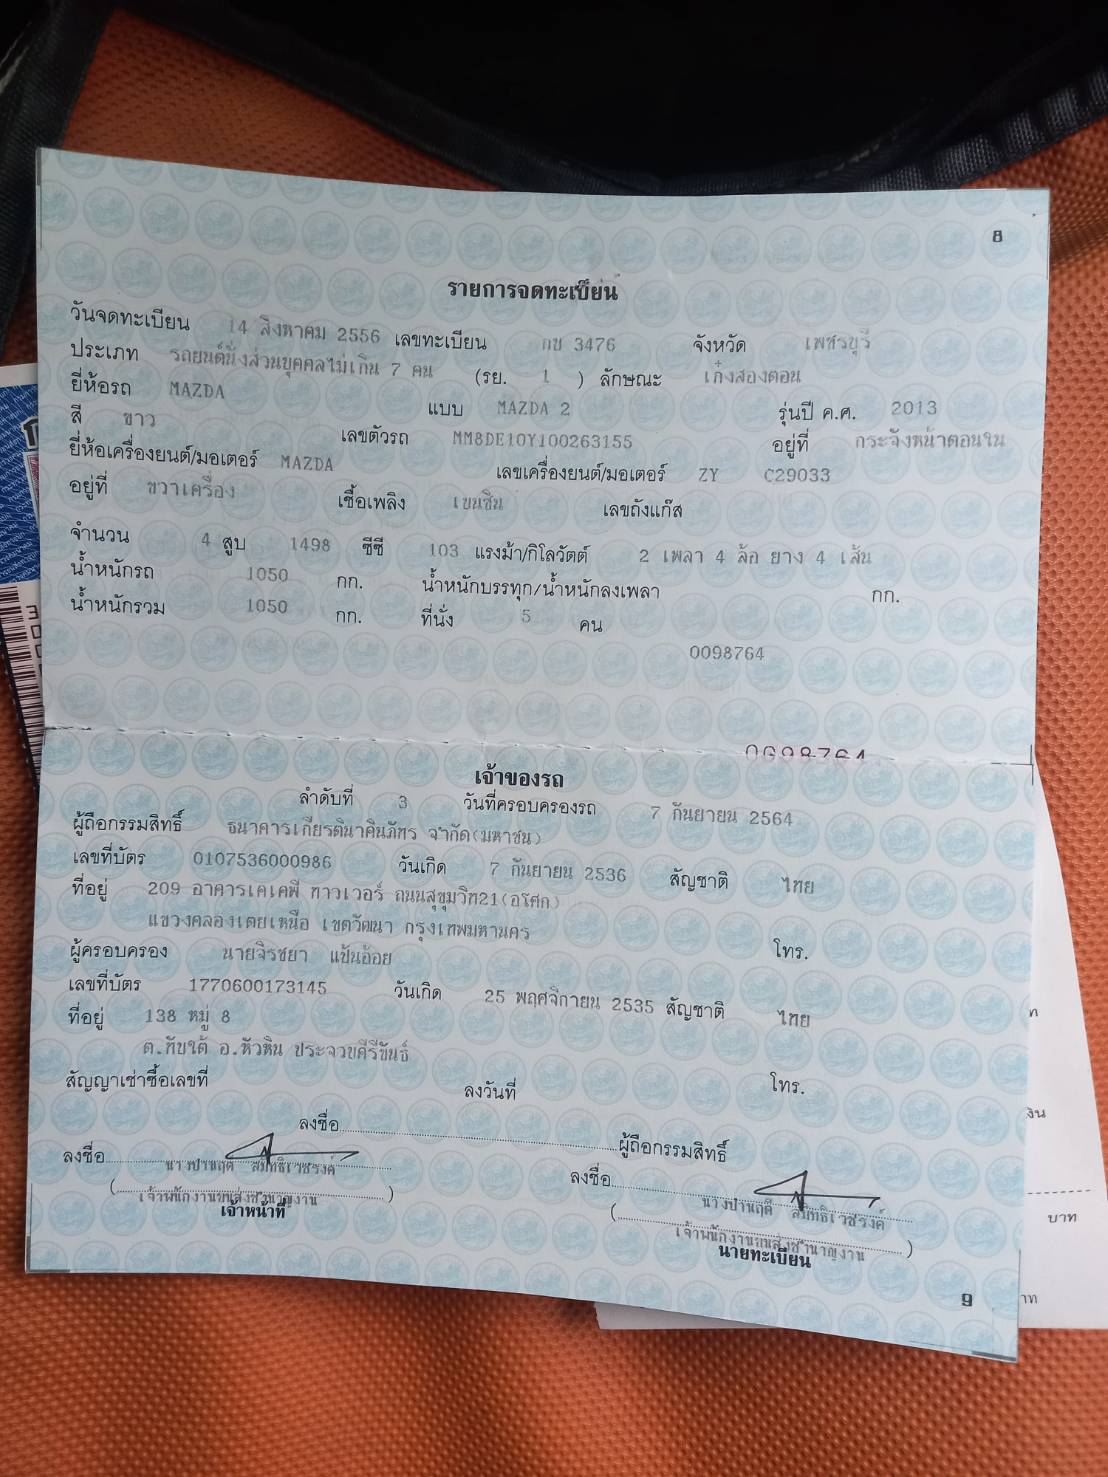 8
รายการจดทะเบียน
วันจดทะเบียน 14 สิงหาคม 2556 เลขทะเบียน กข 3476 จังหวัด เพชรบุรี
ประเภท รถยนต์นั่งส่วนบุคคลไม่เกิน 7 คน (รย. 1 ) ลักษณะ เก๋งสองตอน
ยี่ห้อรถ MAZDA แบบ MAZDA 2 รุ่นปี ค.ศ. 2013
สี ขาว เลขตัวรถ MM8DE10Y100263155 อยู่ที่ กระจังหน้าตอนใน
ยี่ห้อเครื่องยนต์/มอเตอร์ MAZDA เลขเครื่องยนต์/มอเตอร์ ZY C29033
อยู่ที่ ขวาเครื่อง เชื้อเพลิง เบนซิน เลขถังแก๊ส
จำนวน 4 สูบ 1498 ซีซี 103 แรงม้า/กิโลวัตต์ 2 เพลา 4 ล้อ ยาง 4 เส้น
น้ำหนักรถ 1050 กก. น้ำหนักบรรทุก/น้ำหนักลงเพลา กก.
น้ำหนักรวม 1050 กก. ที่นั่ง 5 คน
0098764
เจ้าของรถ
ลำดับที่ 3 วันที่ครอบครองรถ 7 กันยายน 2564
ผู้ถือกรรมสิทธิ์ ธนาคารเกียรตินาคินภัทร จำกัด(มหาชน)
เลขที่บัตร 0107536000986 วันเกิด 7 กันยายน 2536 สัญชาติ ไทย
ที่อยู่ 209 อาคารเคเคพี ทาวเวอร์ ถนนสุขุมวิท21(อโศก)
แขวงคลองเตยเหนือ เขตวัฒนา กรุงเทพมหานคร โทร.
ผู้ครอบครอง นายจิรชยา แป้นอ้อย
เลขที่บัตร 1770600173145 วันเกิด 25 พฤศจิกายน 2535 สัญชาติ ไทย
ที่อยู่ 138 หมู่ 8
ต.ทับใต้ อ.หัวหิน ประจวบคีรีขันธ์
สัญญาเช่าซื้อเลขที่ ลงวันที่ โทร.
ลงชื่อ ผู้ถือกรรมสิทธิ์
ลงชื่อ ลงชื่อ
(เจ้าพนักงานขนส่งชำนาญงาน) (เจ้าพนักงานขนส่งชำนาญงาน)
เจ้าหน้าที่ นายทะเบียน
9
บาท